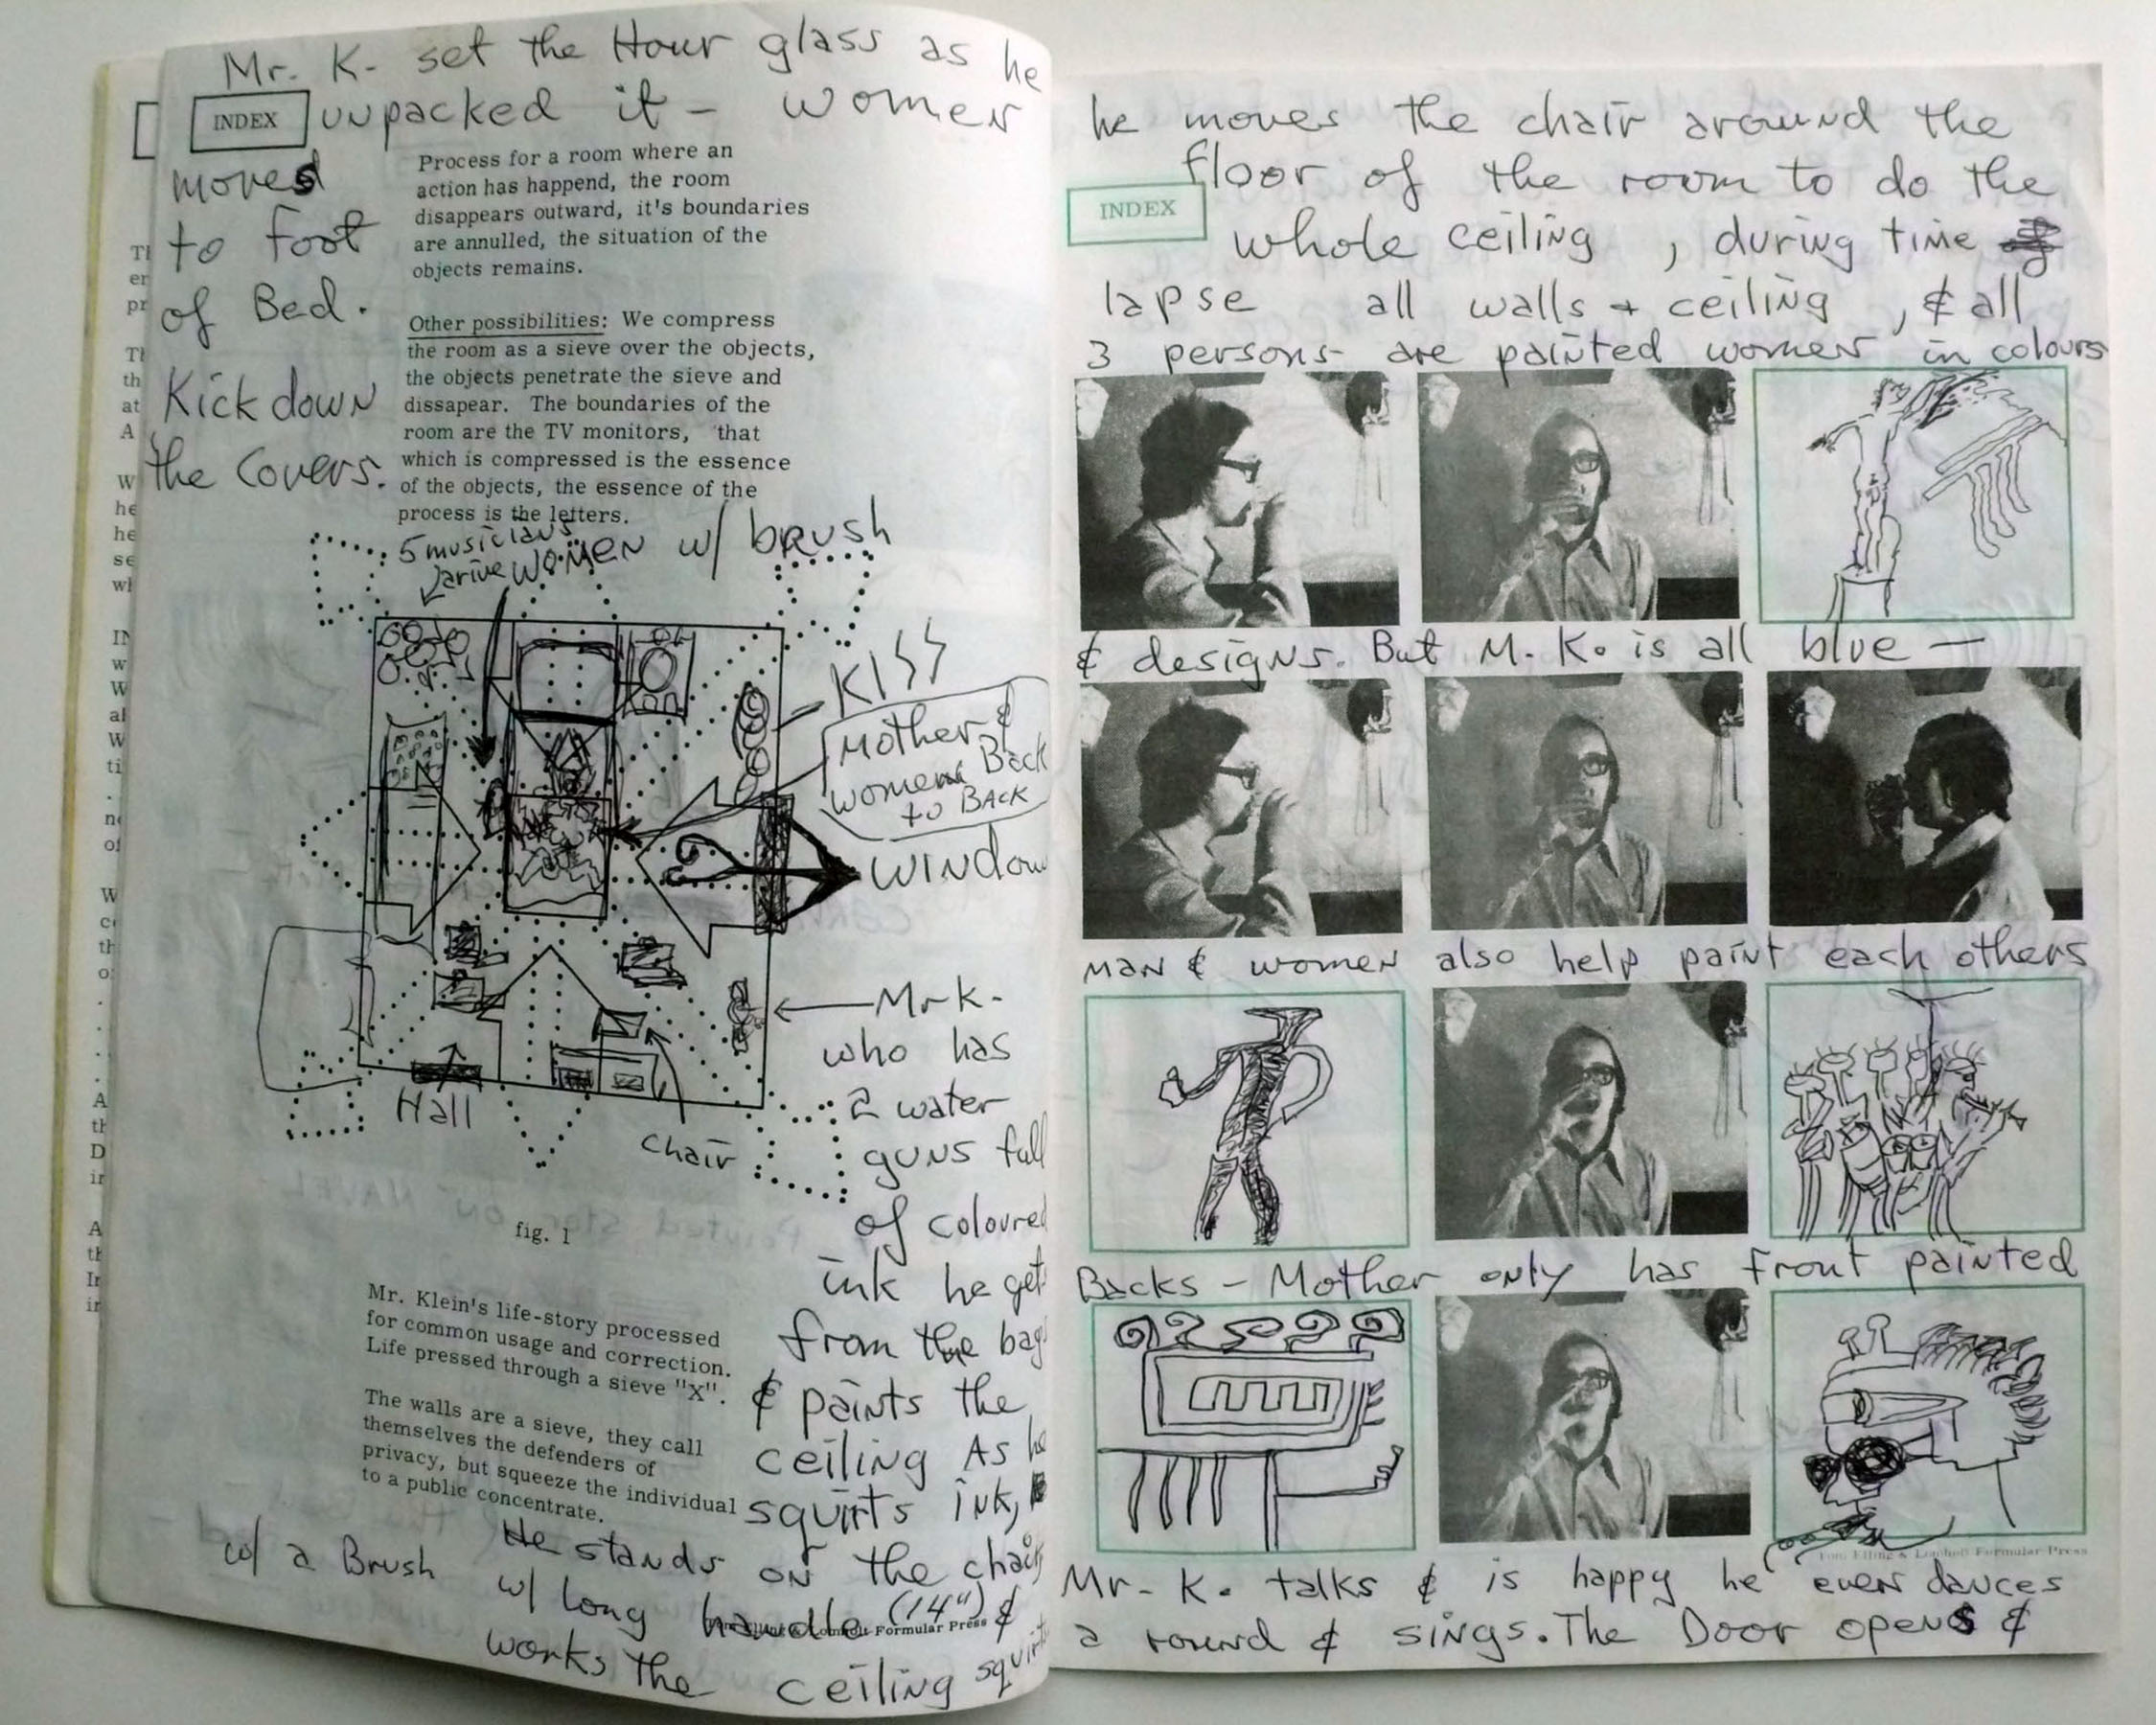 Mr. K. set the Hour glass as he
INDEX
unpacked it – women
moves
to foot
of Bed.
Kick down
the Covers.
Process for a room where an
action has happend, the room
disappears outward, it's boundaries
are annulled, the situation of the
objects remains.
Other possibilities: We compress
the room as a sieve over the objects,
the objects penetrate the sieve and
dissapear. The boundaries of the
room are the TV monitors, that
which is compressed is the essence
of the objects, the essence of the
process is the letters.
5 musicians
arive
WOMEN w/ brush
KISS
Mother &
women Back
to BACK
WINDOW
Mr K.
who has
2 water
guns full
of coloured
ink he gets
from the bag
& paints the
ceiling As he
squirts ink,
Hall
chair
fig. 1
Mr. Klein's life-story processed
for common usage and correction.
Life pressed through a sieve "X".
The walls are a sieve, they call
themselves the defenders of
privacy, but squeeze the individual
to a public concentrate.
w/ a Brush
He stands on the chair
w/ long handle (14") &
Formular Press
works the ceiling squirts
he moves the chair around the
floor of the room to do the
INDEX
whole ceiling, during time
lapse all walls + ceiling, & all
3 persons are painted women in colours
& designs. But M. K. is all blue —
MAN & women also help paint each others
Backs – Mother only has front painted
Tom Elling & Lomholt Formular Press
Mr. K. talks & is happy he even dances
a round & sings. The Door opens &